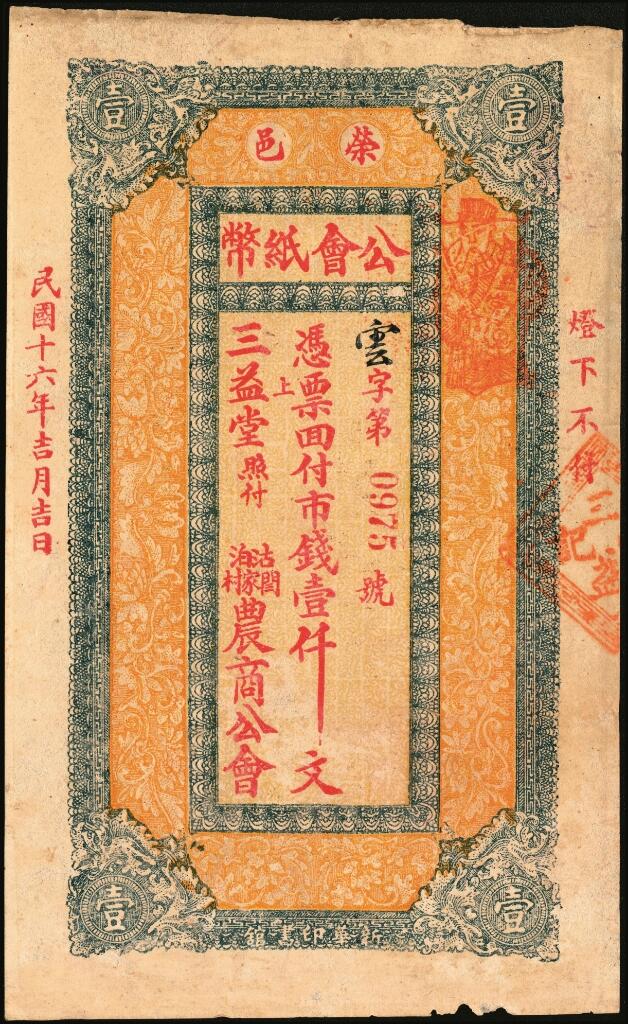 壹
壹
榮邑
公會紙幣
燈下不付
雲字第 0975 號
憑票回付市錢壹仟文
上
三益堂照付
沽泊
閆家村
農商公會
民國十六年吉月吉日
三益記
壹
壹
新華印書館